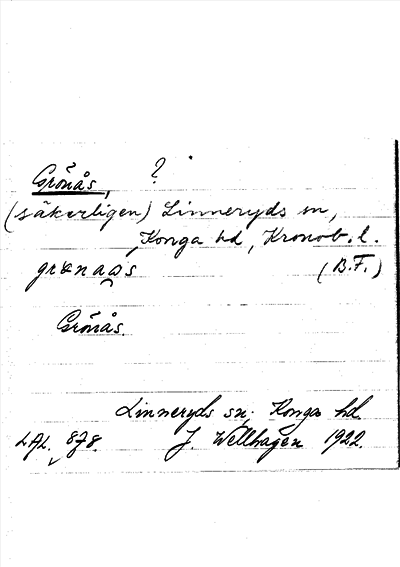 Grönås, ?
(säkerligen) Linneryds sn,
Konga hd, Kronob. l.
(B.F.)
Grönås.
Linneryds sn; Konga hd.
LAL. 878. J. Wellhagen 1922.